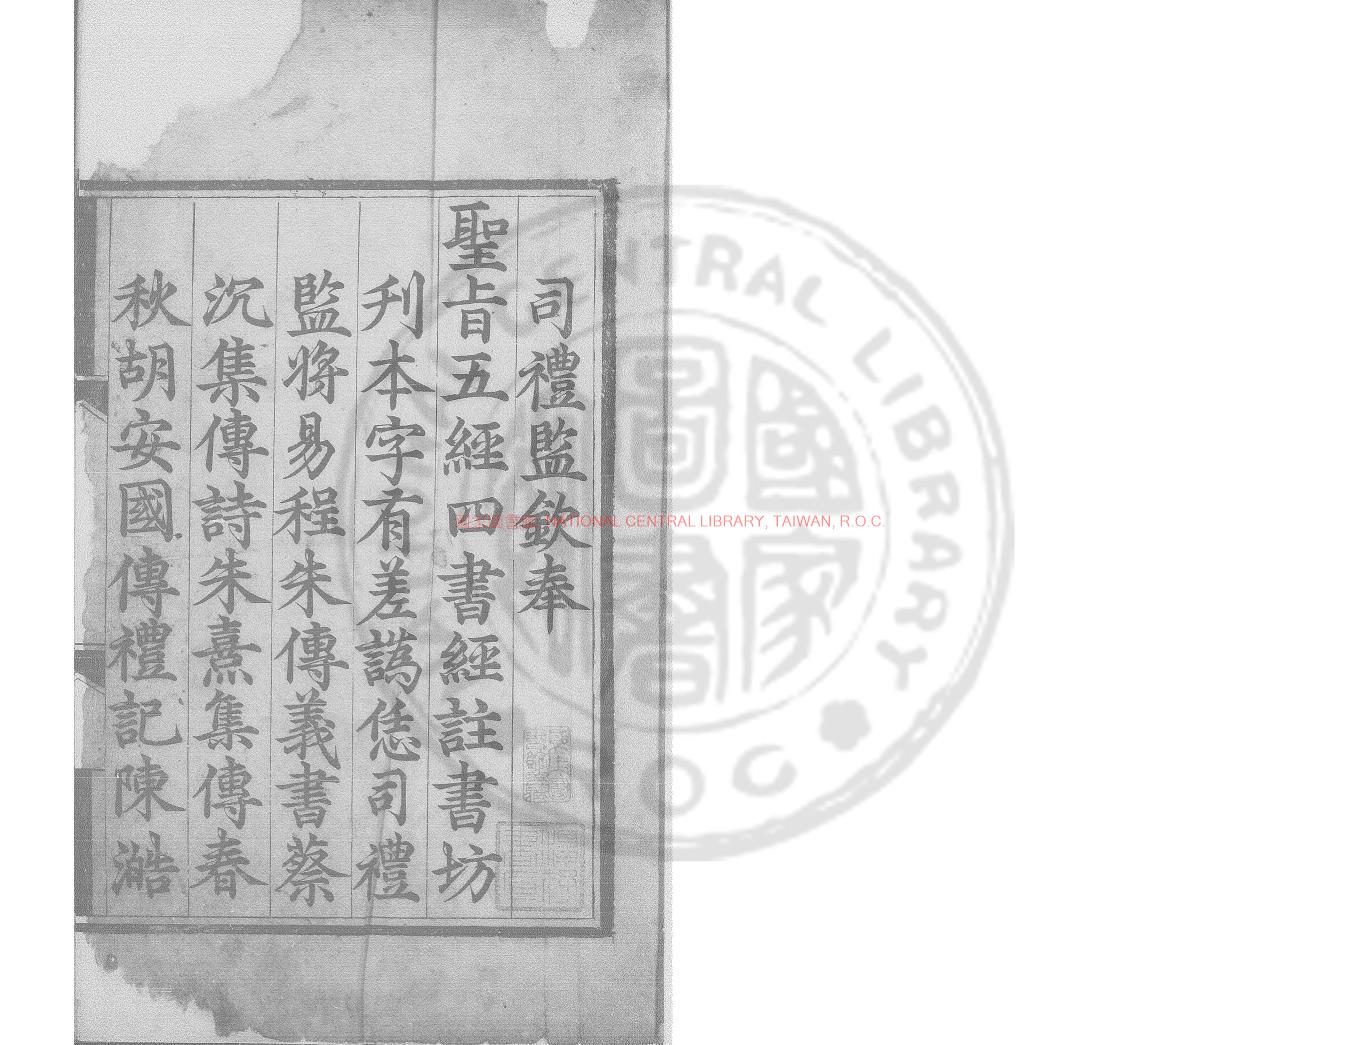 司禮監欽奉
聖旨五經四書經註書坊
刋本字有差譌恁司禮
監將易程朱傳義書蔡
沉集傳詩朱熹集傳春
秋胡安國傳禮記陳澔
NATIONAL CENTRAL LIBRARY, TAIWAN, R.O.C.
CENTRAL LIBRARY
國家圖書館